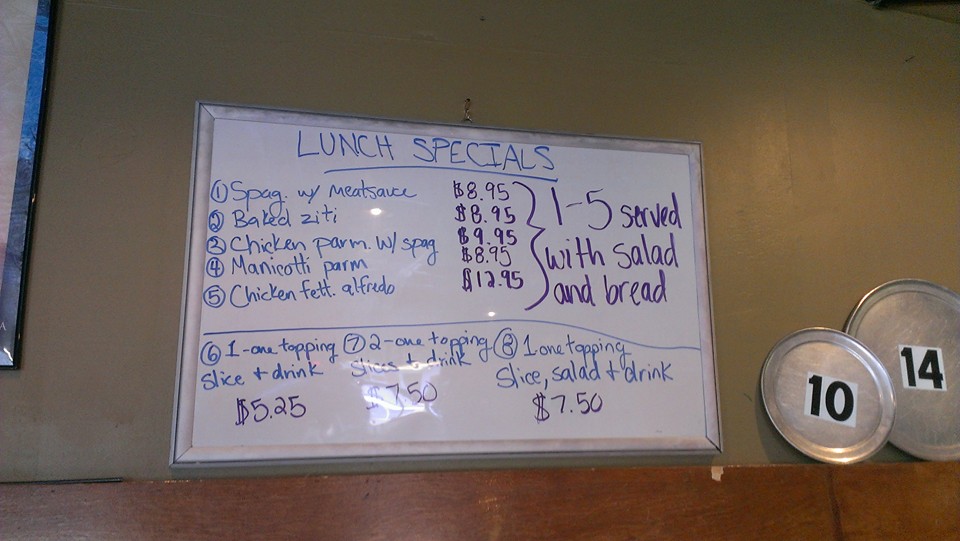 LUNCH SPECIALS
① Spag. w/ meatsauce $8.95
② Baked ziti $8.95
③ Chicken parm. w/ spag $9.95
④ Manicotti parm $8.95
⑤ Chicken fett. alfredo $12.95
1-5 served
with salad
and bread
⑥ 1-one topping
slice + drink
$5.25
⑦ 2-one topping
slices + drink
$7.50
⑧ 1 one topping
slice, salad + drink
$7.50
10
14